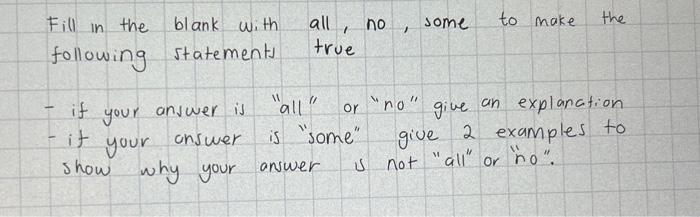 Fill in the blank with all, no, some to make the
following statements true
- if your answer is "all" or "no" give an explanation
- if your answer is "some" give 2 examples to
show why your answer is not "all" or "no".